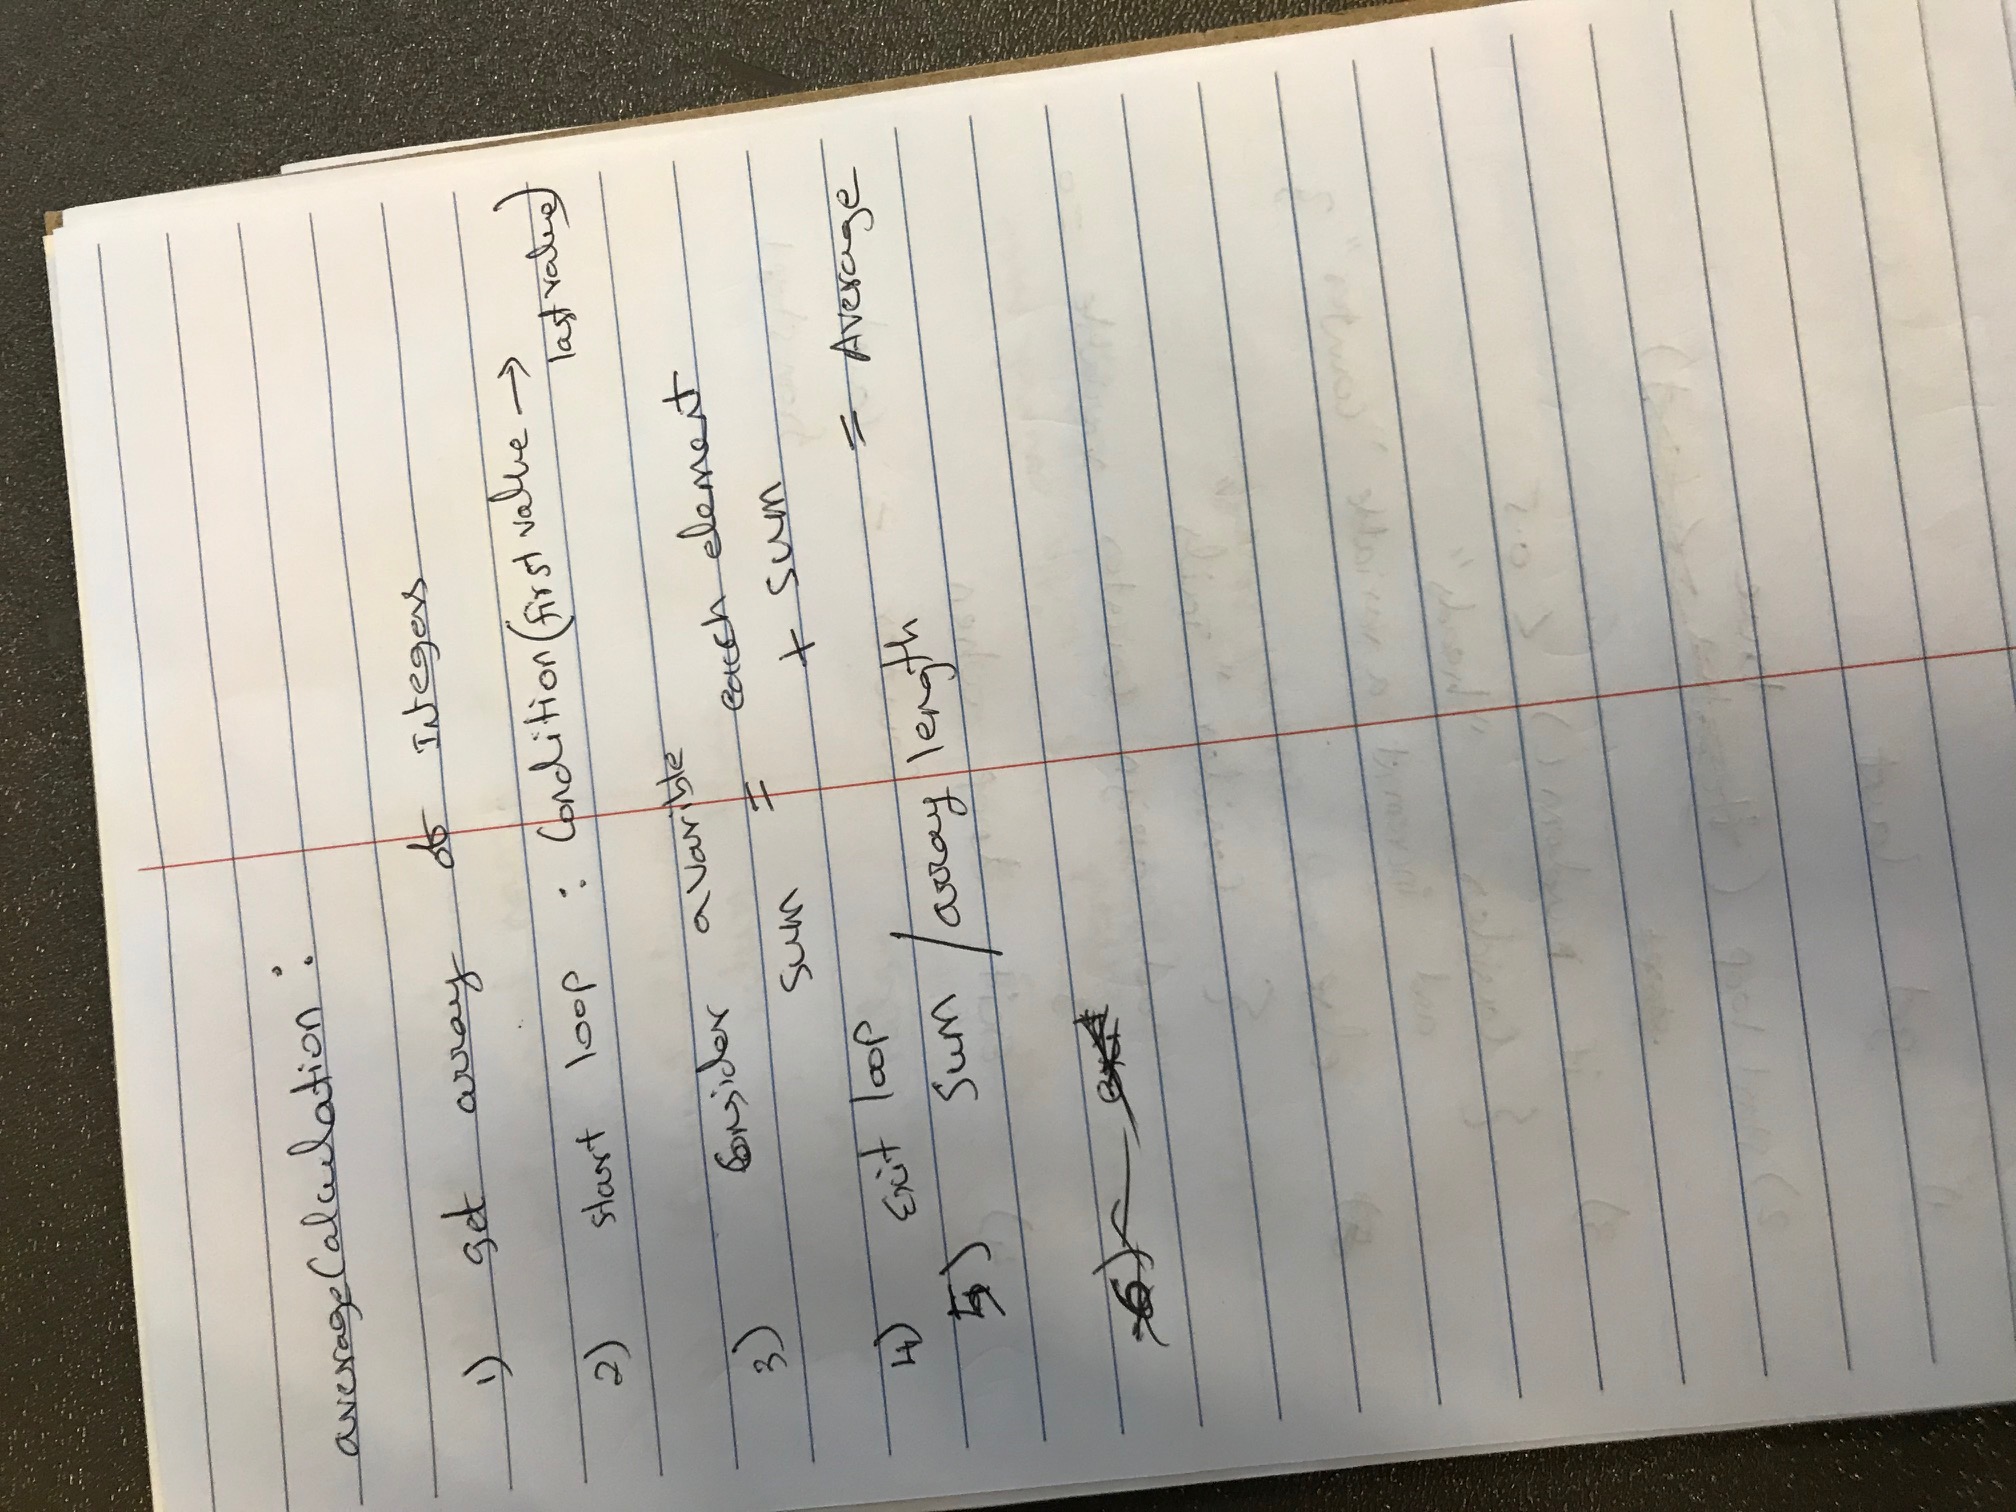 averageCalculation :
1) get array of Integers
2) start loop : Condition (first value →
last value)
3) Consider a varible
sum = each element
+ sum
4) Exit loop
5) Sum / array length = Average
6) exit